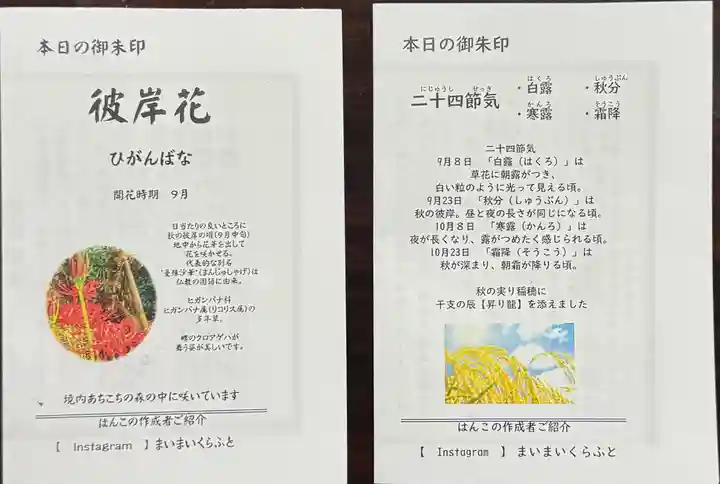 本日の御朱印
彼岸花
ひがんばな
開花時期 9月
日当たりの良いところに
秋の彼岸の頃(9月中旬)
地中から花芽を出して
花を咲かせる。
代表的な別名
"曼殊沙華"(まんじゅしゃげ)は
仏教の国語に由来。
ヒガンバナ科
ヒガンバナ属(リコリス属)の
多年草。
蝶のクロアゲハが
舞う姿が美しいです。
境内あちこちの森の中に咲いています
はんこの作成者ご紹介
【 Instagram 】まいまいくらふと
本日の御朱印
にじゅうし せっき はくろ しゅうぶん
二十四節気 ・白露 ・秋分
かんろ そうこう
・寒露 ・霜降
二十四節気
9月8日 「白露(はくろ)」は
草花に朝露がつき、
白い粒のように光って見える頃。
9月23日 「秋分(しゅうぶん)」は
秋の彼岸。昼と夜の長さが同じになる頃。
10月8日 「寒露(かんろ)」は
夜が長くなり、露がつめたく感じられる頃。
10月23日 「霜降(そうこう)」は
秋が深まり、朝霜が降りる頃。
秋の実り稲穂に
干支の辰【昇り龍】を添えました
はんこの作成者ご紹介
【 Instagram 】まいまいくらふと